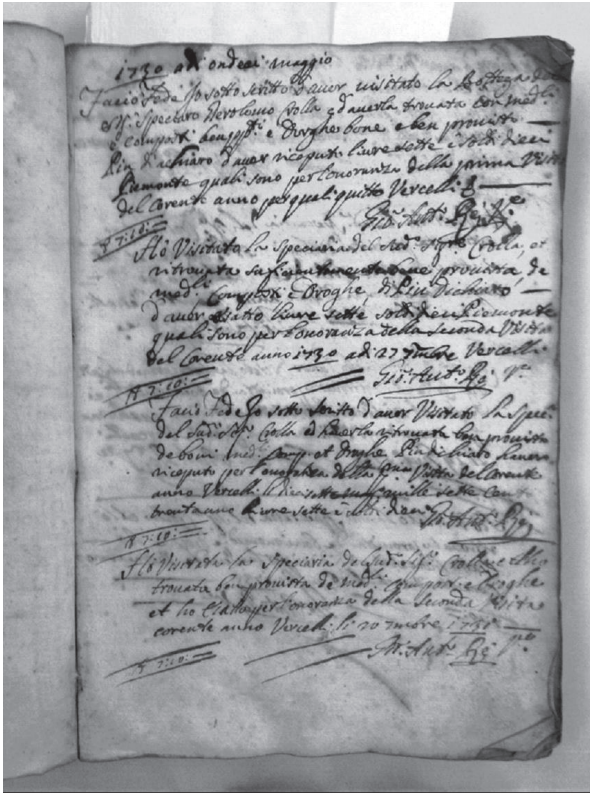 1730 adi ondeci maggio
Faccio fede Io sotto scritto d'aver visitato la Bottega del
Sr. Speciaro Bertolomo Crolla e d'averla trovata con med.li
e composti ben pti. e Droghe bone e ben provisto
Più dichiaro d'aver riceputo livre sette e soldi dieci
Piemonte quali sono per l'onoranza della prima Visita
del Corente anno per quali quitto Vercelli
Gio: Ant.o
£ 7:10:
Hò Visitato la Speciaria del Sud.o Sig.re Crolla, et
ritrovata suficientemente bene provista de
med.li Composti e Droghe, di Più Dichiaro
d'aver esatto livre sette soldi dieci Piemonte
quali sono per l'onoranza della Seconda Visita
del Corente anno 1730 adi 27 7mbre Vercelli
Gio: Ant.o
£ 7:10:
Faccio Fede Io sotto Scritto d'aver Visitato la Spec.a
del Sud.o Sig.r Crolla ed haverla ritrovata ben provista
de boni med.li Comp. et Droghe Più dichiaro haver
riceputo per l'onoranza della Visita del Corente
anno Vercelli li dieci sette mille sette cento
trenta uno livre sette e soldi dieci
Ant.o
£ 7:10:
Hò Visitato la Speciaria del Sud.o Sig.r Crolla e
trovata ben provista de med.li Compos. e Droghe
et ho per l'onoranza della Seconda Visita
corente anno Vercelli li 20 1731
Ant.o
£ 7:10: